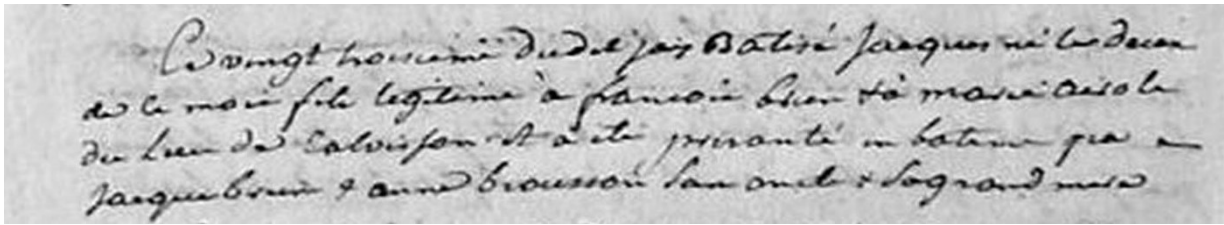 Le vingt troisieme dudit jay Batisé Jacques né le
de ce mois fils legitime à francois brun & à marie
du lieu de Calvisson et a ete presanté au bateme par
Jacque brun & anne brousson son oncle & sa grand mere